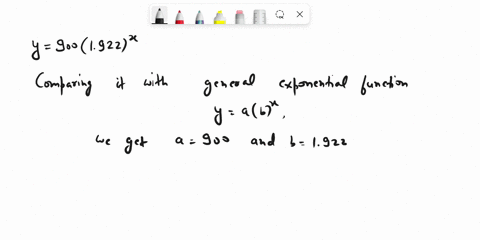 y = 900 (1.922)^x
Comparing it with general exponential function
y = a(b)^x,
we get a = 900 and b = 1.922